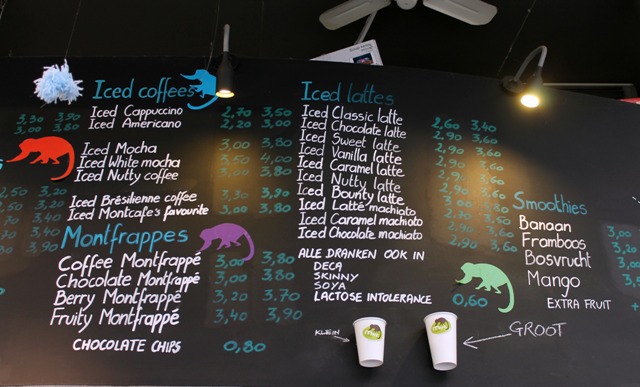 3,30 3,90
3,00 3,80
3,20
3,40
3,40
3,90
Iced coffees
Iced Cappuccino 2,70 3,50
Iced Americano
Iced Mocha 3,00 3,80
Iced White mocha 3,50 4,00
Iced Nutty coffee 3,00 3,80
Iced Brésilienne coffee 3,30 3,90
Iced Montcafe's favourite 3,00 3,80
Montfrappes
Coffee Montfrappé 3,00 3,80
Chocolate Montfrappé 3,00 3,80
Berry Montfrappé 3,20 3,70
Fruity Montfrappé 3,40 3,90
CHOCOLATE CHIPS 0,80
Iced lattes
Iced Classic latte 2,60 3,40
Iced Chocolate latte 2,90 3,60
Iced Sweet latte 2,90 3,60
Iced Vanilla latte 2,90 3,60
Iced Caramel latte 2,90 3,60
Iced Nutty latte 2,90 3,60
Iced Bounty latte 2,90 3,60
Iced Latte machiato
Iced Caramel machioto 2,90 3,60
Iced Chocolate machiato 2,90 3,60
ALLE DRANKEN OOK IN
DECA
SKINNY
SOYA
LACTOSE INTOLERANCE 0,60
KLEIN
GROOT
Smoothies
Banaan 3,00
Framboos 3,20
Bosvrucht 3,20
Mango
EXTRA FRUIT